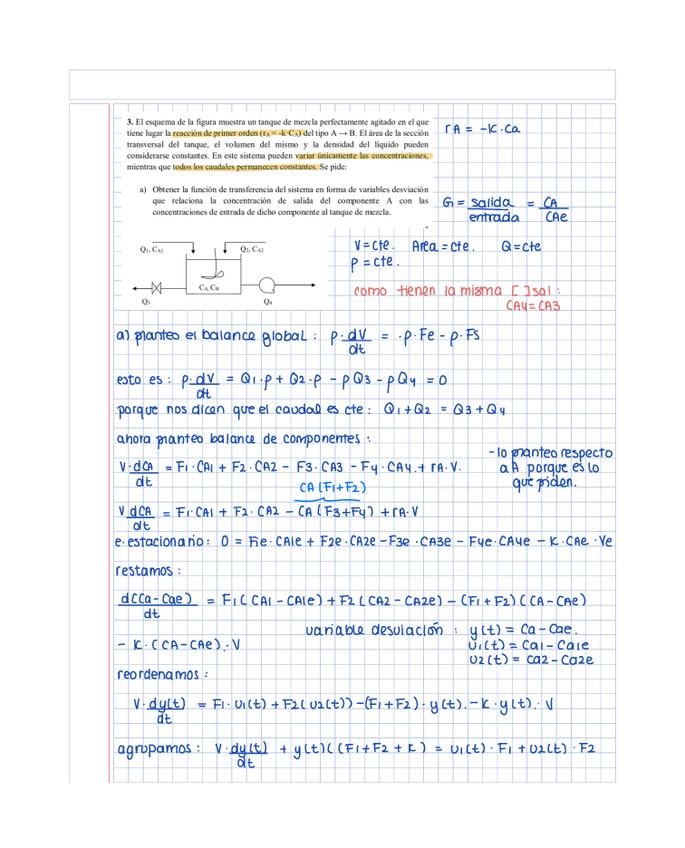 3. El esquema de la figura muestra un tanque de mezcla perfectamente agitado en el que
tiene lugar la reacción de primer orden (rA = -k·CA) del tipo A → B. El área de la sección
transversal del tanque, el volumen del mismo y la densidad del líquido pueden
considerarse constantes. En este sistema pueden variar únicamente las concentraciones,
mientras que todos los caudales permanecen constantes. Se pide:
rA = -K·Ca
a) Obtener la función de transferencia del sistema en forma de variables desviación
que relaciona la concentración de salida del componente A con las
concentraciones de entrada de dicho componente al tanque de mezcla.
G = salida/entrada = CA/CAe
Q1, CA1
Q2, CA2
CA, CB
Q3
Q4
V = cte. Area = cte. Q = cte
ρ = cte.
como tienen la misma [ ]sal:
CA4 = CA3
a) planteo el balance global: ρ·dV/dt = ·ρ·Fe - ρ·Fs
esto es: ρ·dV/dt = Q1·ρ + Q2·ρ - ρQ3 - ρQ4 = 0
porque nos dicen que el caudal es cte: Q1+Q2 = Q3+Q4
ahora planteo balance de componentes:
- lo planteo respecto
a A porque es lo
que piden.
V·dCA/dt = F1·CA1 + F2·CA2 - F3·CA3 - F4·CA4. + rA·V.
CA(F1+F2)
V dCA/dt = F1·CA1 + F2·CA2 - CA(F3+F4) + rA·V
e·estacionario: 0 = F1e·CA1e + F2e·CA2e - F3e·CA3e - F4e·CA4e - K·CAe·Ve
restamos:
d(Ca-Cae)/dt = F1(CA1-CA1e) + F2(CA2-CA2e) - (F1+F2)(CA-CAe)
- K·(CA-CAe)·V
variable desviación: y(t) = Ca-Cae.
U1(t) = Ca1-Ca1e
U2(t) = Ca2-Ca2e
reordenamos:
V·dy(t)/dt = F1·U1(t) + F2(U2(t)) - (F1+F2)·y(t). - K·y(t)·V
agrupamos: V·dy(t)/dt + y(t)((F1+F2+K) = U1(t)·F1 + U2(t)·F2